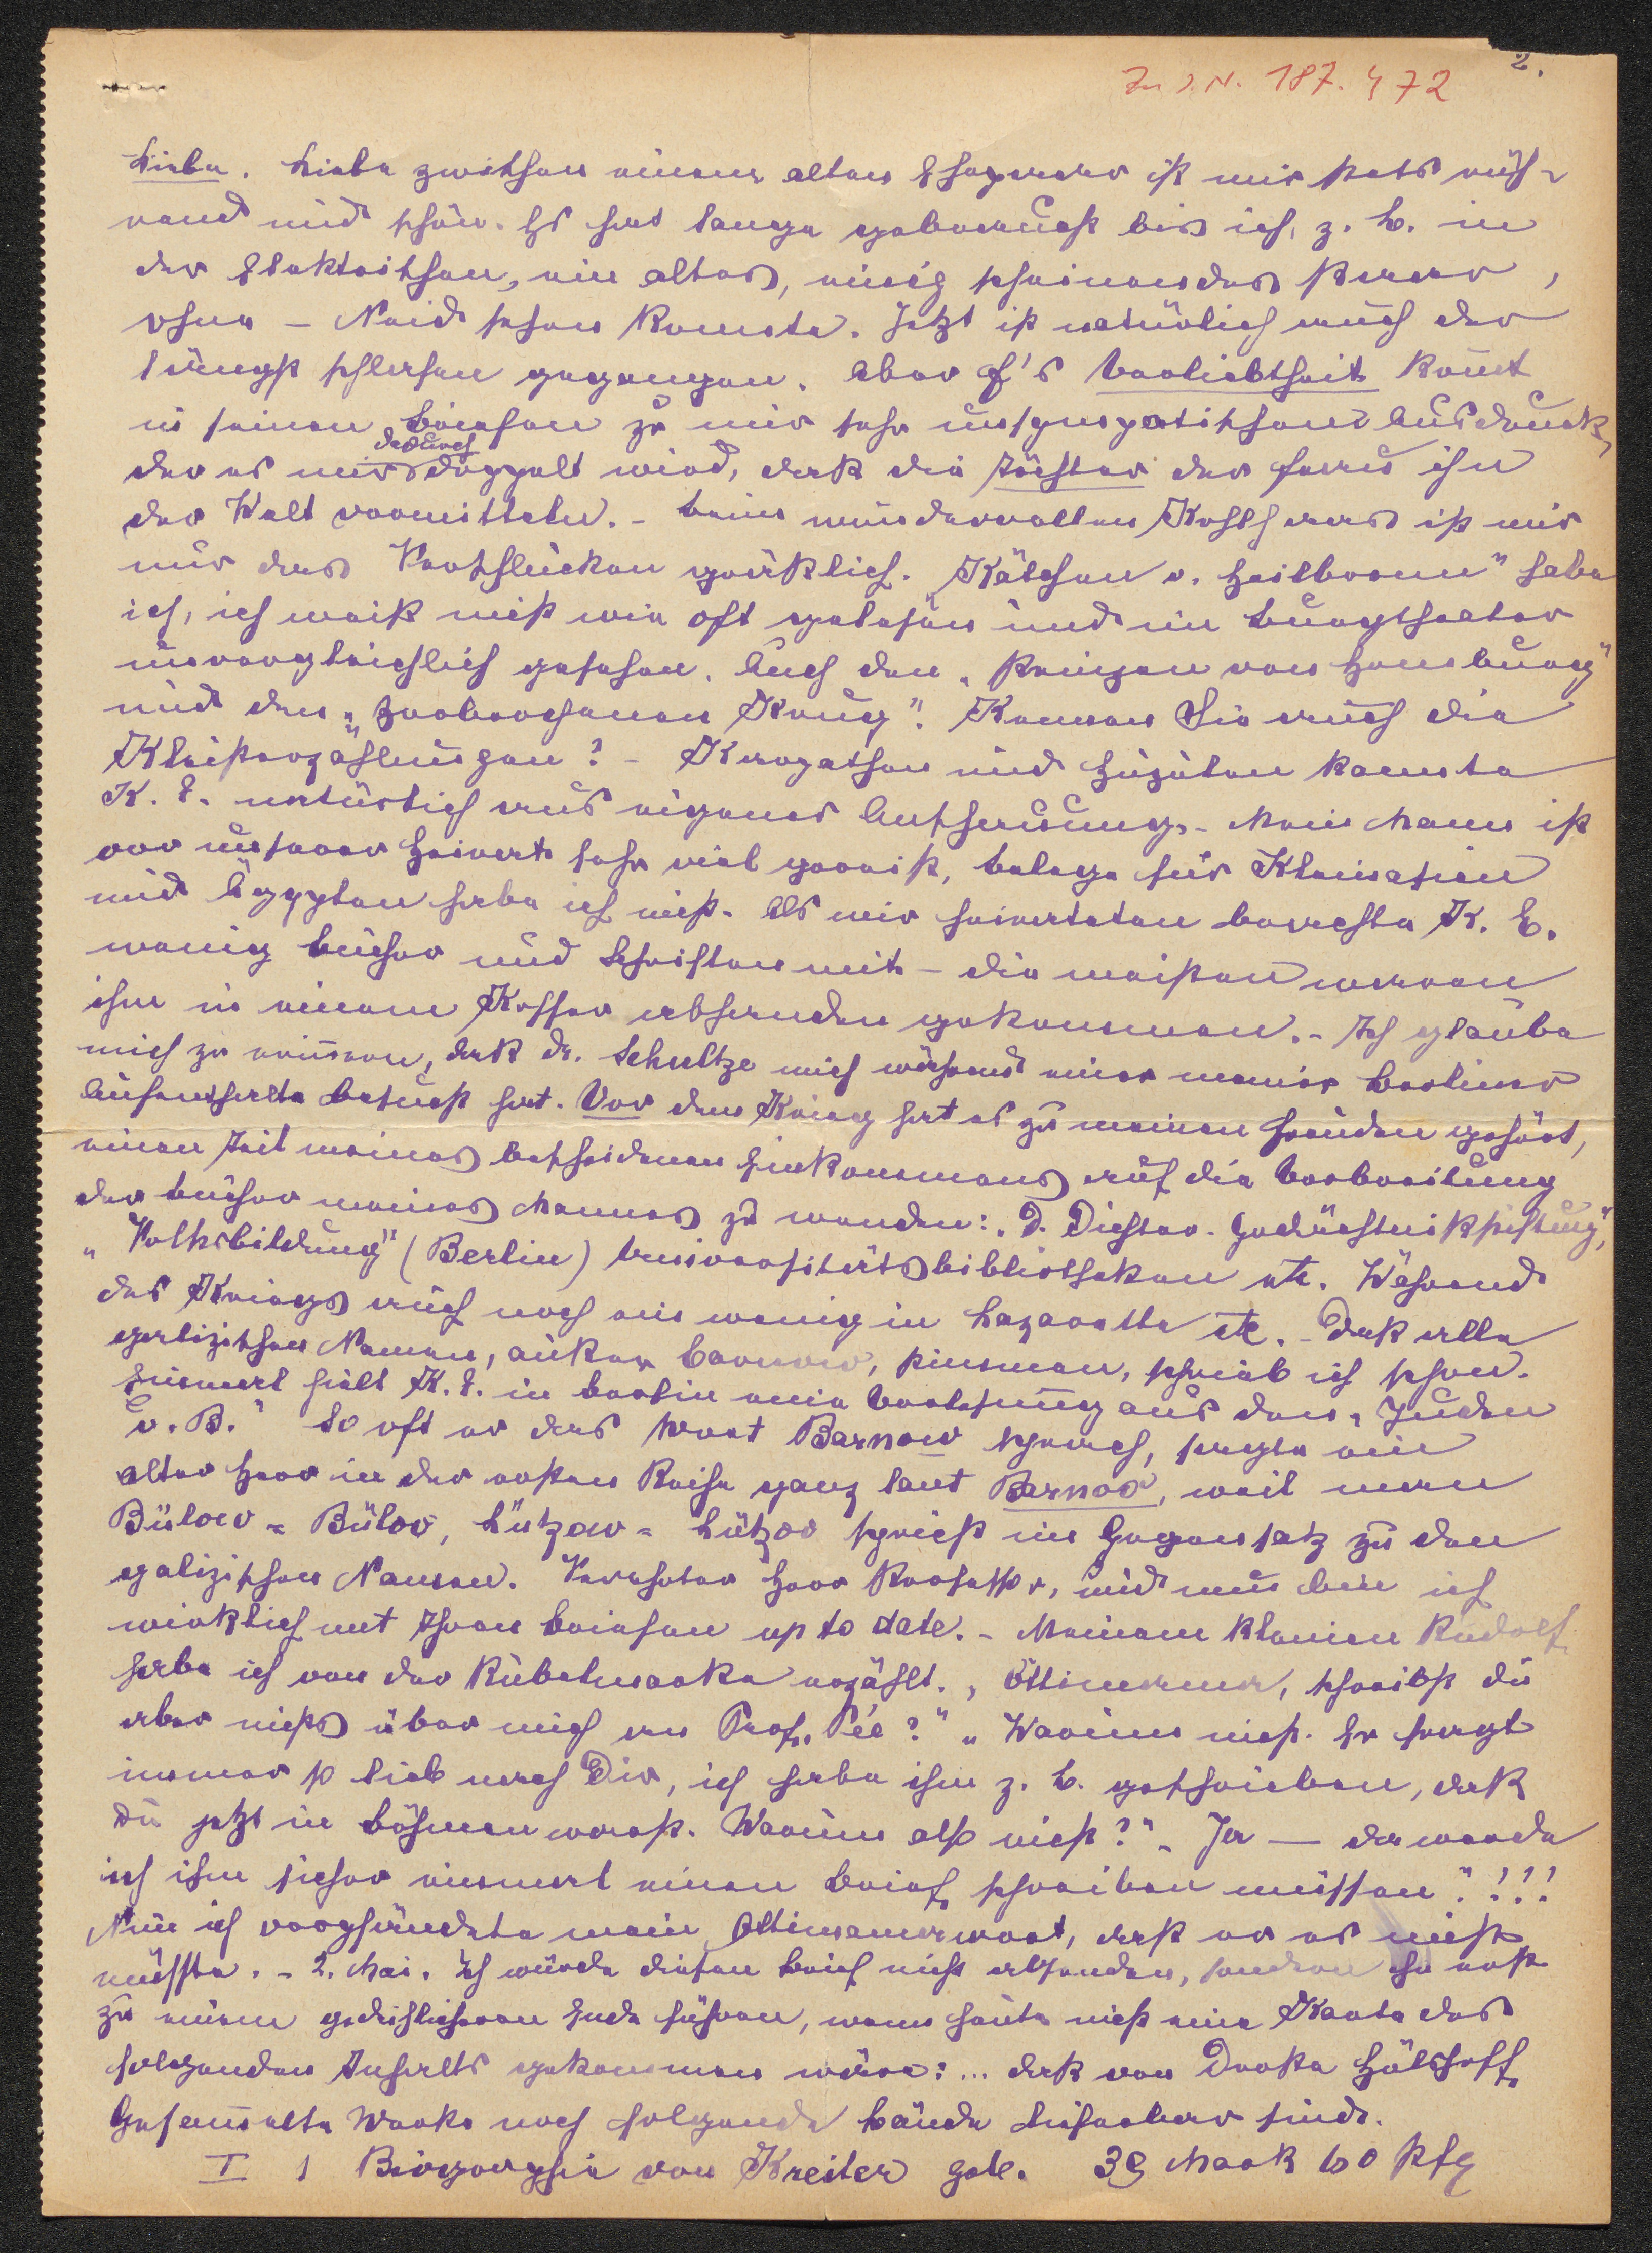 Zu I.N. 187.472
2.
Liebe. Liebe zwischen einem alten Ehepaar ist mir stets rüh-
rend und schön. Es hat lange gebraucht bis ich, z. B. in
der Elektrischen, ein altes, einig scheinendes Paar,
ohne – Neid sehen konnte. Jetzt ist natürlich auch der
längst schlafen gegangen. Aber F's Verliebtheit kom̄t
in seinen Briefen zu mir sehr unsympathischen Ausdruck,
der es mir dadurch doppelt wird, daß die Töchter der Frau ihn
der Welt vermitteln. – Beim wundervollen Kohlhaas ist mir
nur das Verschlucken gräßlich. „Käthchen v. Heilbronn" habe
ich, ich weiß nicht wie oft gelesen und im Burgtheater
unvergleichlich gesehen. Auch den „Prinzen von Homburg"
und den „Zerbrochenen Krug". Kennen Sie auch die
Kleisterzählungen? – Karpathen und Huzulen kannte
K. E. natürlich aus eigener Anschauung. – Mein Mann ist
vor unserer Heirat sehr viel gereist, Belege für Kleinasien
und Ägypten habe ich nicht. Als wir heirateten brachte K. E.
wenig Bücher und Schriften mit – die meisten waren
ihm in einem Koffer abhanden gekommen. – Ich glaube
mich zu erinnern, daß Dr. Schultze mich während einer meiner Berliner
Aufenthalte besucht hat. Vor dem Krieg hat es zu meinen Freuden gehört,
einen Teil meines bescheidenen Einkommens auf die Verbreitung
der Bücher meines Mannes zu wenden: „D. Dichter-Gedächtnisstiftung",
„Volksbildung" (Berlin) Universitätsbibliotheken etc. Während
des Kriegs auch noch ein wenig in Lazarette etc. – Daß alle
galizischen Namen, außer Barnow, stimmen, schrieb ich schon.
Einmal hielt K. E. in Berlin eine Vorlesung aus den „Juden
v. B." So oft er das Wort Barnow sprach, sagte ein
alter Herr in der ersten Reihe ganz laut Barnoo, weil man
Bülow = Büloo, Lützow = Lützoo spricht im Gegensatz zu den
galizischen Namen. Verehrter Herr Professor, und nun bin ich
wirklich mit Ihren Briefen up to date. – Meinem kleinen Rudolf
habe ich von der Rübelmarke erzählt. „Ottimama, schreibst du
aber nichts über mich an Prof. Pée?" „Warum nicht. Er fragt
immer so lieb nach Dir, ich habe ihm z. B. geschrieben, daß
Du jetzt in Böhmen warst. Warum also nicht?" „Ja — da werde
ich ihm sicher einmal einen Brief schreiben müssen"!!!
Nun ich verpfändete mein Ottimamawort, daß er es nicht
müsste. – 2. Mai. Ich würde diesen Brief nicht absenden, sondern ihn erst
zu einem gedeihlicheren Ende führen, wenn heute nicht eine Karte des
folgenden Inhalts gekommen wäre: ... daß von Droste Hülshoff,
Gesammelte Werke noch folgende Bände lieferbar sind.
I 1 Biographie von Kreiten geb. 3 Mark 60 Pfg